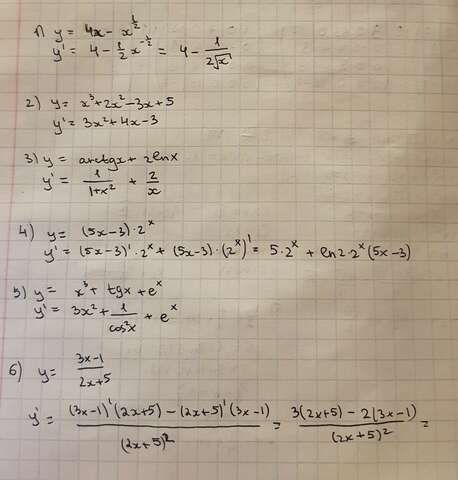 1) y = 4x - x^{1/2}
y' = 4 - \frac{1}{2} x^{-1/2} = 4 - \frac{1}{2\sqrt{x}}
2) y = x^3 + 2x^2 - 3x + 5
y' = 3x^2 + 4x - 3
3) y = arctgx + 2lnx
y' = \frac{1}{1+x^2} + \frac{2}{x}
4) y = (5x-3) · 2^x
y' = (5x-3)' · 2^x + (5x-3) · (2^x)' = 5 · 2^x + ln2 · 2^x (5x-3)
5) y = x^3 + tgx + e^x
y' = 3x^2 + \frac{1}{cos^2x} + e^x
6) y = \frac{3x-1}{2x+5}
y' = \frac{(3x-1)'(2x+5) - (2x+5)'(3x-1)}{(2x+5)^2} = \frac{3(2x+5) - 2(3x-1)}{(2x+5)^2} =